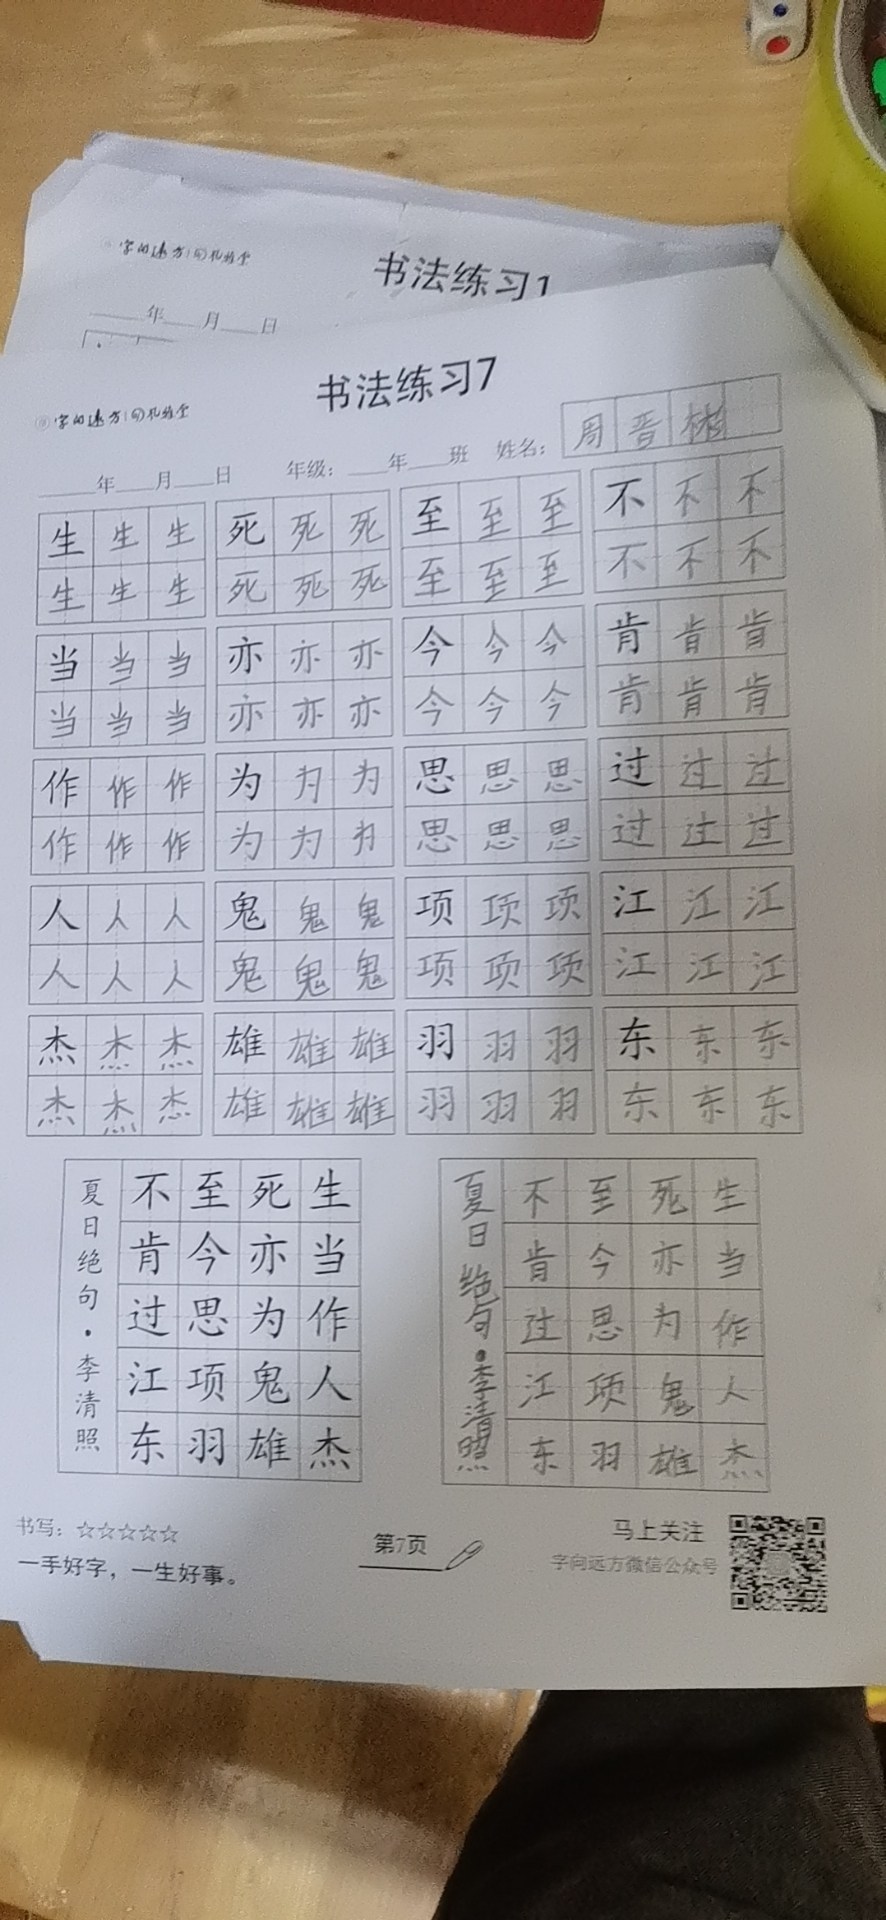 字向远方
书法练习1
年 月 日
书法练习7
字向远方
年 月 日 年级: 年 班 姓名: 周晋彬
生生生 死死死 至至至 不不不
生生生 死死死 至至至 不不不
当当当 亦亦亦 今今今 肯肯肯
当当当 亦亦亦 今今今 肯肯肯
作作作 为为为 思思思 过过过
作作作 为为为 思思思 过过过
人人人 鬼鬼鬼 项项项 江江江
人人人 鬼鬼鬼 项项项 江江江
杰杰杰 雄雄雄 羽羽羽 东东东
杰杰杰 雄雄雄 羽羽羽 东东东
生当作人杰
死亦为鬼雄
至今思项羽
不肯过江东
夏日绝句·李清照
生当作人杰
死亦为鬼雄
至今思项羽
不肯过江东
夏日绝句·李清照
书写: ☆☆☆☆☆
一手好字，一生好事。
第7页
马上关注
字向远方微信公众号